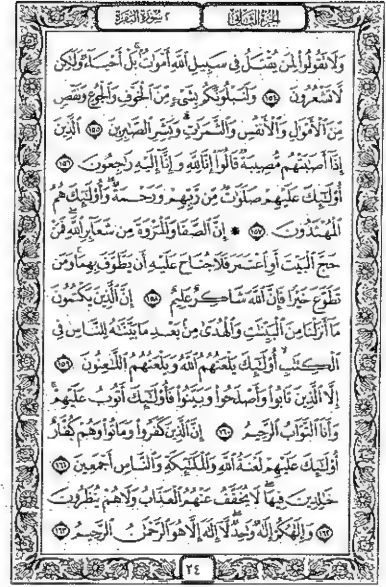 الجزء الثاني
٢ سورة البقرة
وَلَا تَقُولُوا۟ لِمَن يُقْتَلُ فِى سَبِيلِ ٱللَّهِ أَمْوَٰتٌۢ بَلْ أَحْيَآءٌ وَلَٰكِن
لَّا تَشْعُرُونَ ١٥٤ وَلَنَبْلُوَنَّكُم بِشَىْءٍ مِّنَ ٱلْخَوْفِ وَٱلْجُوعِ وَنَقْصٍ
مِّنَ ٱلْأَمْوَٰلِ وَٱلْأَنفُسِ وَٱلثَّمَرَٰتِ وَبَشِّرِ ٱلصَّٰبِرِينَ ١٥٥ ٱلَّذِينَ
إِذَآ أَصَٰبَتْهُم مُّصِيبَةٌ قَالُوٓا۟ إِنَّا لِلَّهِ وَإِنَّآ إِلَيْهِ رَٰجِعُونَ ١٥٦
أُو۟لَٰٓئِكَ عَلَيْهِمْ صَلَوَٰتٌ مِّن رَّبِّهِمْ وَرَحْمَةٌ وَأُو۟لَٰٓئِكَ هُمُ
ٱلْمُهْتَدُونَ ١٥٧ * إِنَّ ٱلصَّفَا وَٱلْمَرْوَةَ مِن شَعَآئِرِ ٱللَّهِ فَمَنْ
حَجَّ ٱلْبَيْتَ أَوِ ٱعْتَمَرَ فَلَا جُنَاحَ عَلَيْهِ أَن يَطَّوَّفَ بِهِمَا وَمَن
تَطَوَّعَ خَيْرًا فَإِنَّ ٱللَّهَ شَاكِرٌ عَلِيمٌ ١٥٨ إِنَّ ٱلَّذِينَ يَكْتُمُونَ
مَآ أَنزَلْنَا مِنَ ٱلْبَيِّنَٰتِ وَٱلْهُدَىٰ مِنۢ بَعْدِ مَا بَيَّنَّٰهُ لِلنَّاسِ فِى
ٱلْكِتَٰبِ أُو۟لَٰٓئِكَ يَلْعَنُهُمُ ٱللَّهُ وَيَلْعَنُهُمُ ٱللَّٰعِنُونَ ١٥٩
إِلَّا ٱلَّذِينَ تَابُوا۟ وَأَصْلَحُوا۟ وَبَيَّنُوا۟ فَأُو۟لَٰٓئِكَ أَتُوبُ عَلَيْهِمْ
وَأَنَا ٱلتَّوَّابُ ٱلرَّحِيمُ ١٦٠ إِنَّ ٱلَّذِينَ كَفَرُوا۟ وَمَاتُوا۟ وَهُمْ كُفَّارٌ
أُو۟لَٰٓئِكَ عَلَيْهِمْ لَعْنَةُ ٱللَّهِ وَٱلْمَلَٰٓئِكَةِ وَٱلنَّاسِ أَجْمَعِينَ ١٦١
خَٰلِدِينَ فِيهَا لَا يُخَفَّفُ عَنْهُمُ ٱلْعَذَابُ وَلَا هُمْ يُنظَرُونَ
١٦٢ وَإِلَٰهُكُمْ إِلَٰهٌ وَٰحِدٌ لَّآ إِلَٰهَ إِلَّا هُوَ ٱلرَّحْمَٰنُ ٱلرَّحِيمُ ١٦٣
٢٤